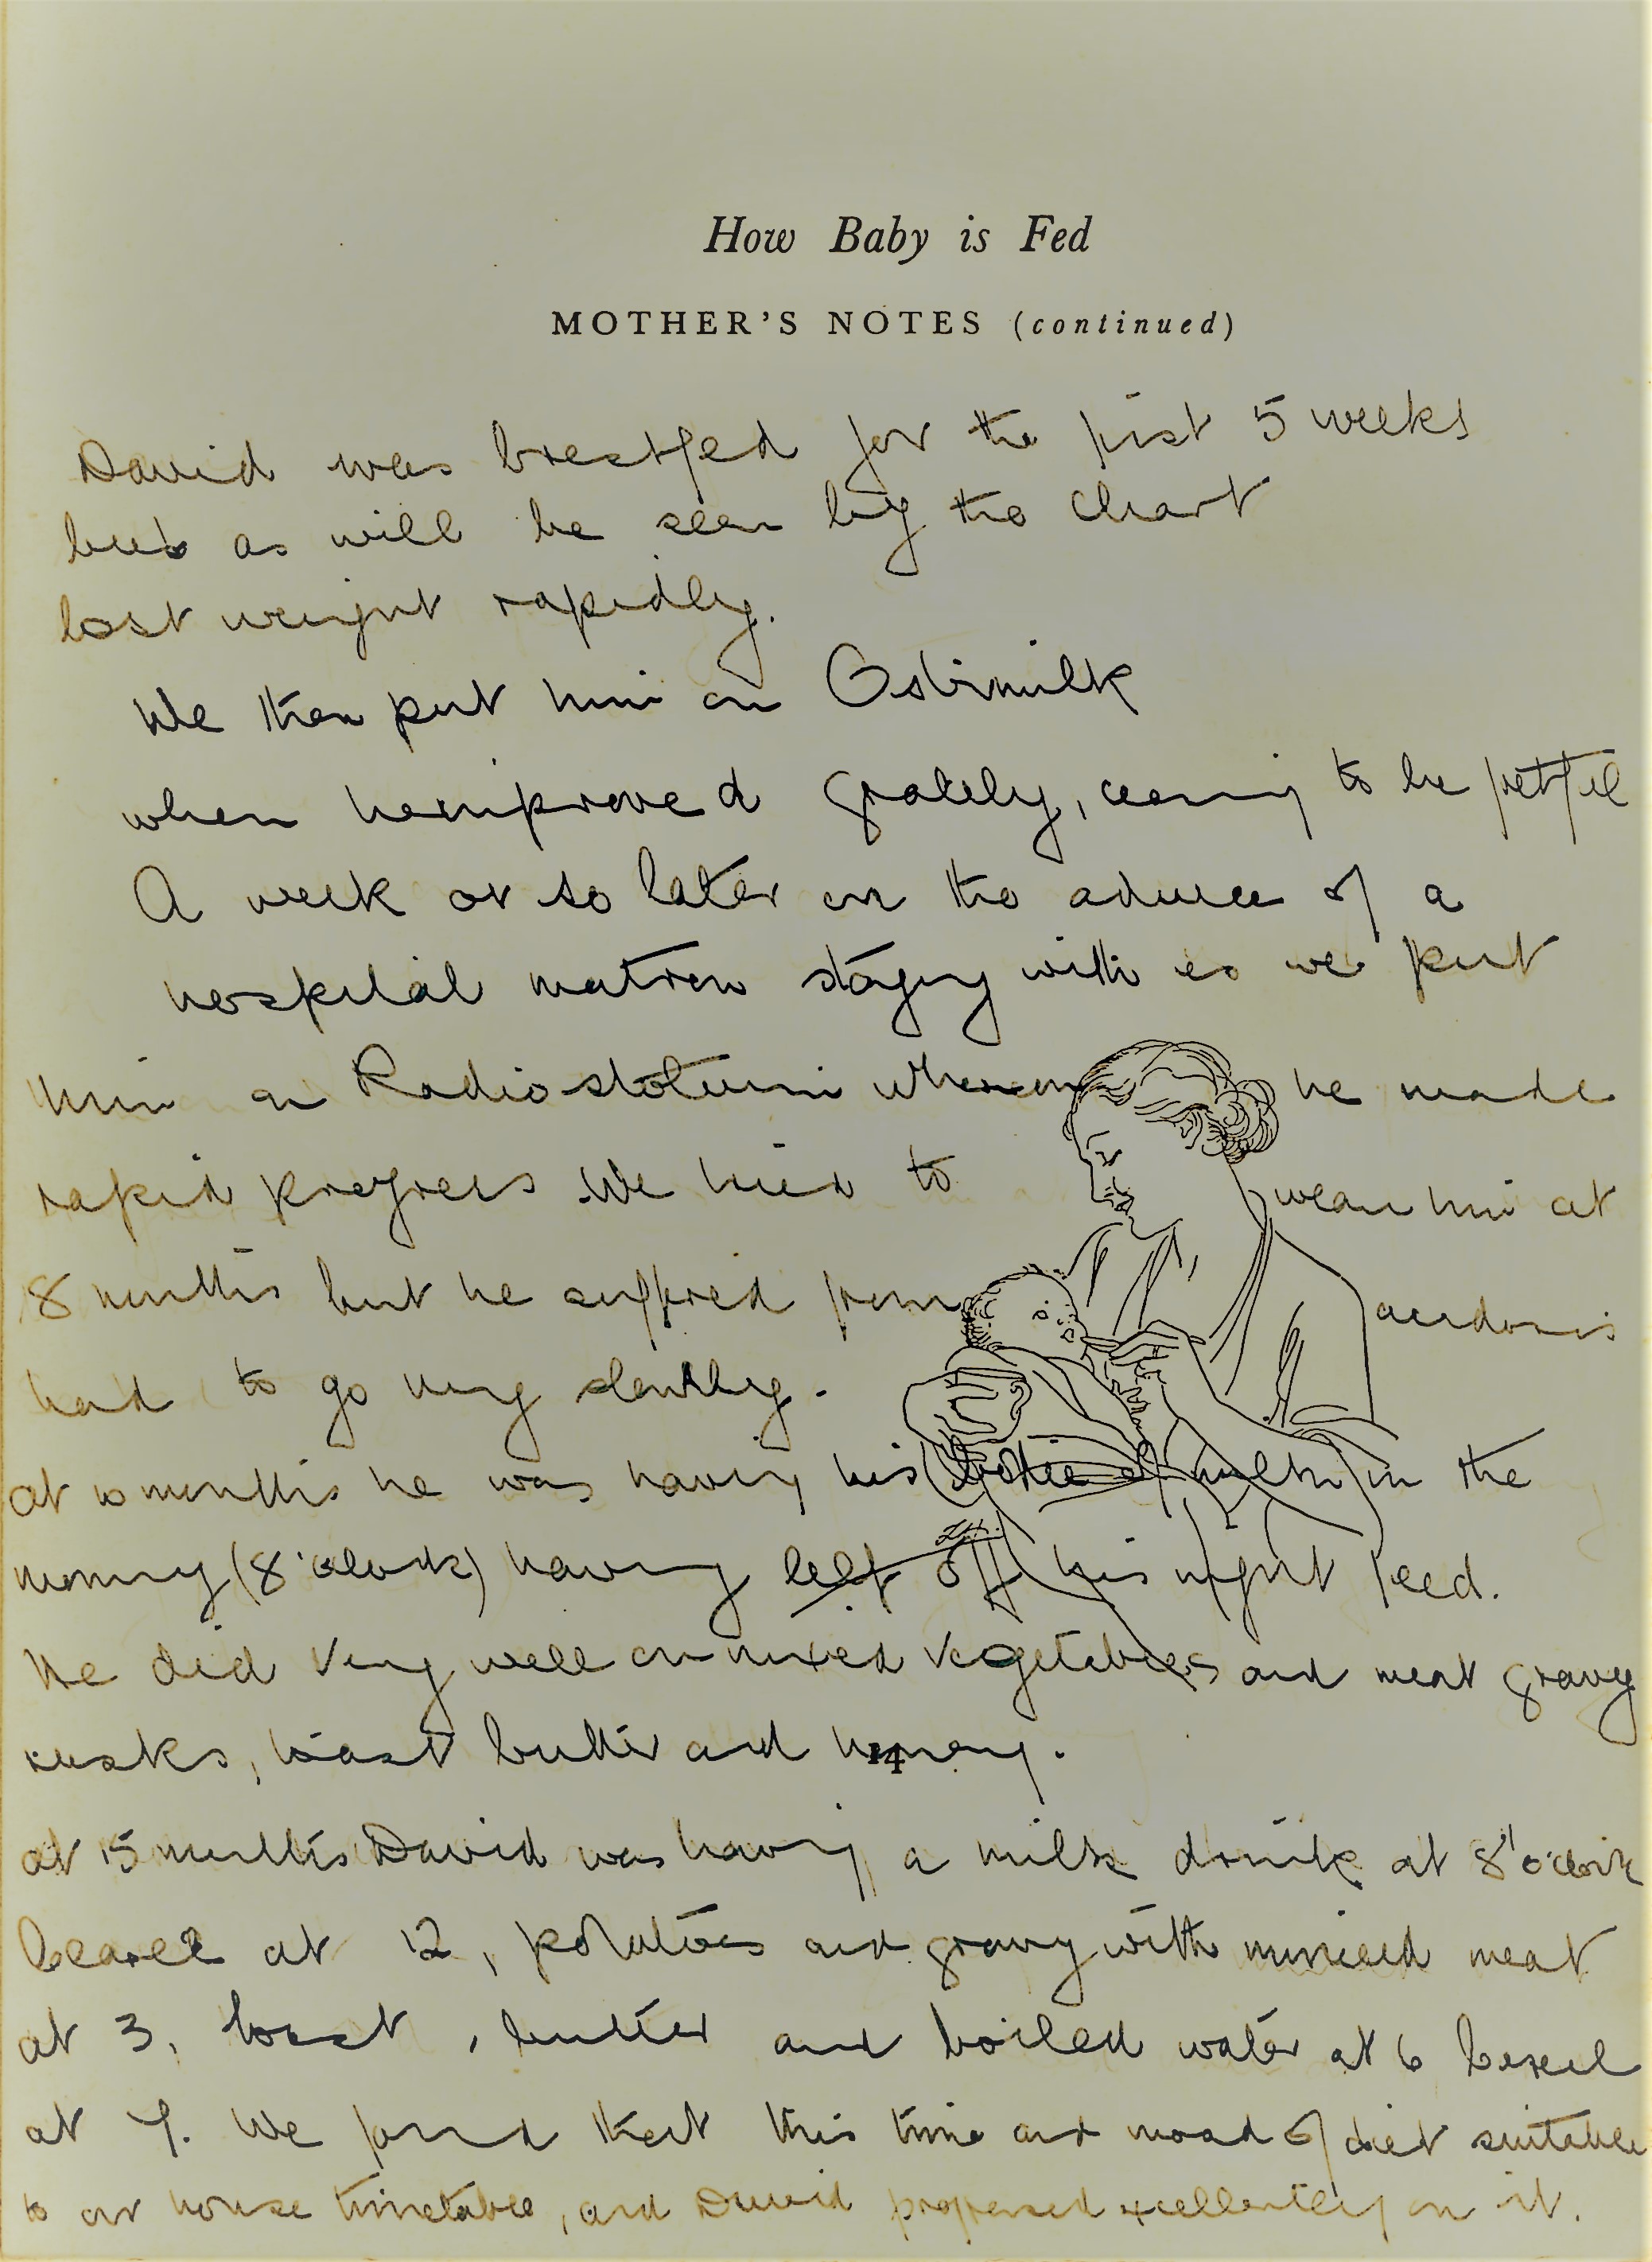 How Baby is Fed
MOTHER'S NOTES (continued)
David was brestfed for the first 5 weeks
but as will be seen by the chart
lost weight rapidly.
We then put him on Ostimilk
when he improved greately, ceasing to be fretful
A week or so later on the advice of a
hospital matron staying with us we put
him on Radiostoleum whereon he made
rapid progress. We tried to wean him at
8 months but he suffred from acidosis
had to go very slowly.
at 10 months he was having his bottle of milk in the
morning (8 o'clock) having left off his night feed.
He did very well on mixed vegetables and meat gravy
rusks, toast butter and honey.
14
at 15 months David was having a milk drink at 8 o'clock
at 12, potatoes and gravy with minced meat
at 3, toast, butter and boiled water at 6
at 7. We found that this time and mood of diet suitable
to our house timetable, and David progressed excellently on it.